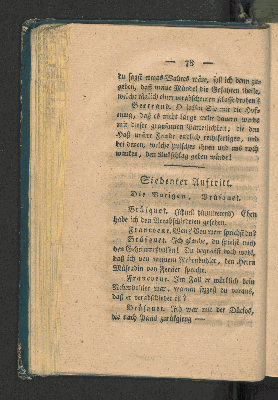 — 78 —
du sagst etwas Wahres wäre, soll ich denn zu-
geben, daß meine Mündel die Gefahren theile,
welche täglich einer verabscheuten Klasse drohen?
Bertrand. O lassen Sie mir die Hoff-
nung, daß es nicht lange mehr dauern werde
mit dieser grausamen Parteilichkeit, die den
Haß unsrer Feinde endlich rechtfertiget, und
bei denen, welche zwischen ihnen und uns noch
wanken, den Ausschlag geben würde!
Siebenter Auftritt.
Die Vorigen, Brüsquet.
Brüsquet. (schnell hereintretend) Eben
habe ich den Verabschiedeten gesehen.
Francoeur. Wen? Von wem sprichst du?
Brüsquet. Ich glaube, du spielst noch
den Geheimnißvollen! Du begreifst doch wohl,
daß ich von deinem Nebenbuhler, den Herrn
Müscadin von Ferrier spreche.
Francoeur. Im Fall er wirklich mein
Nebenbuhler war, warum setzest du voraus,
daß er verabschiedet es?
Brüsquet. Ich war mit der Duclos,
die nach Paris zurükgieng —